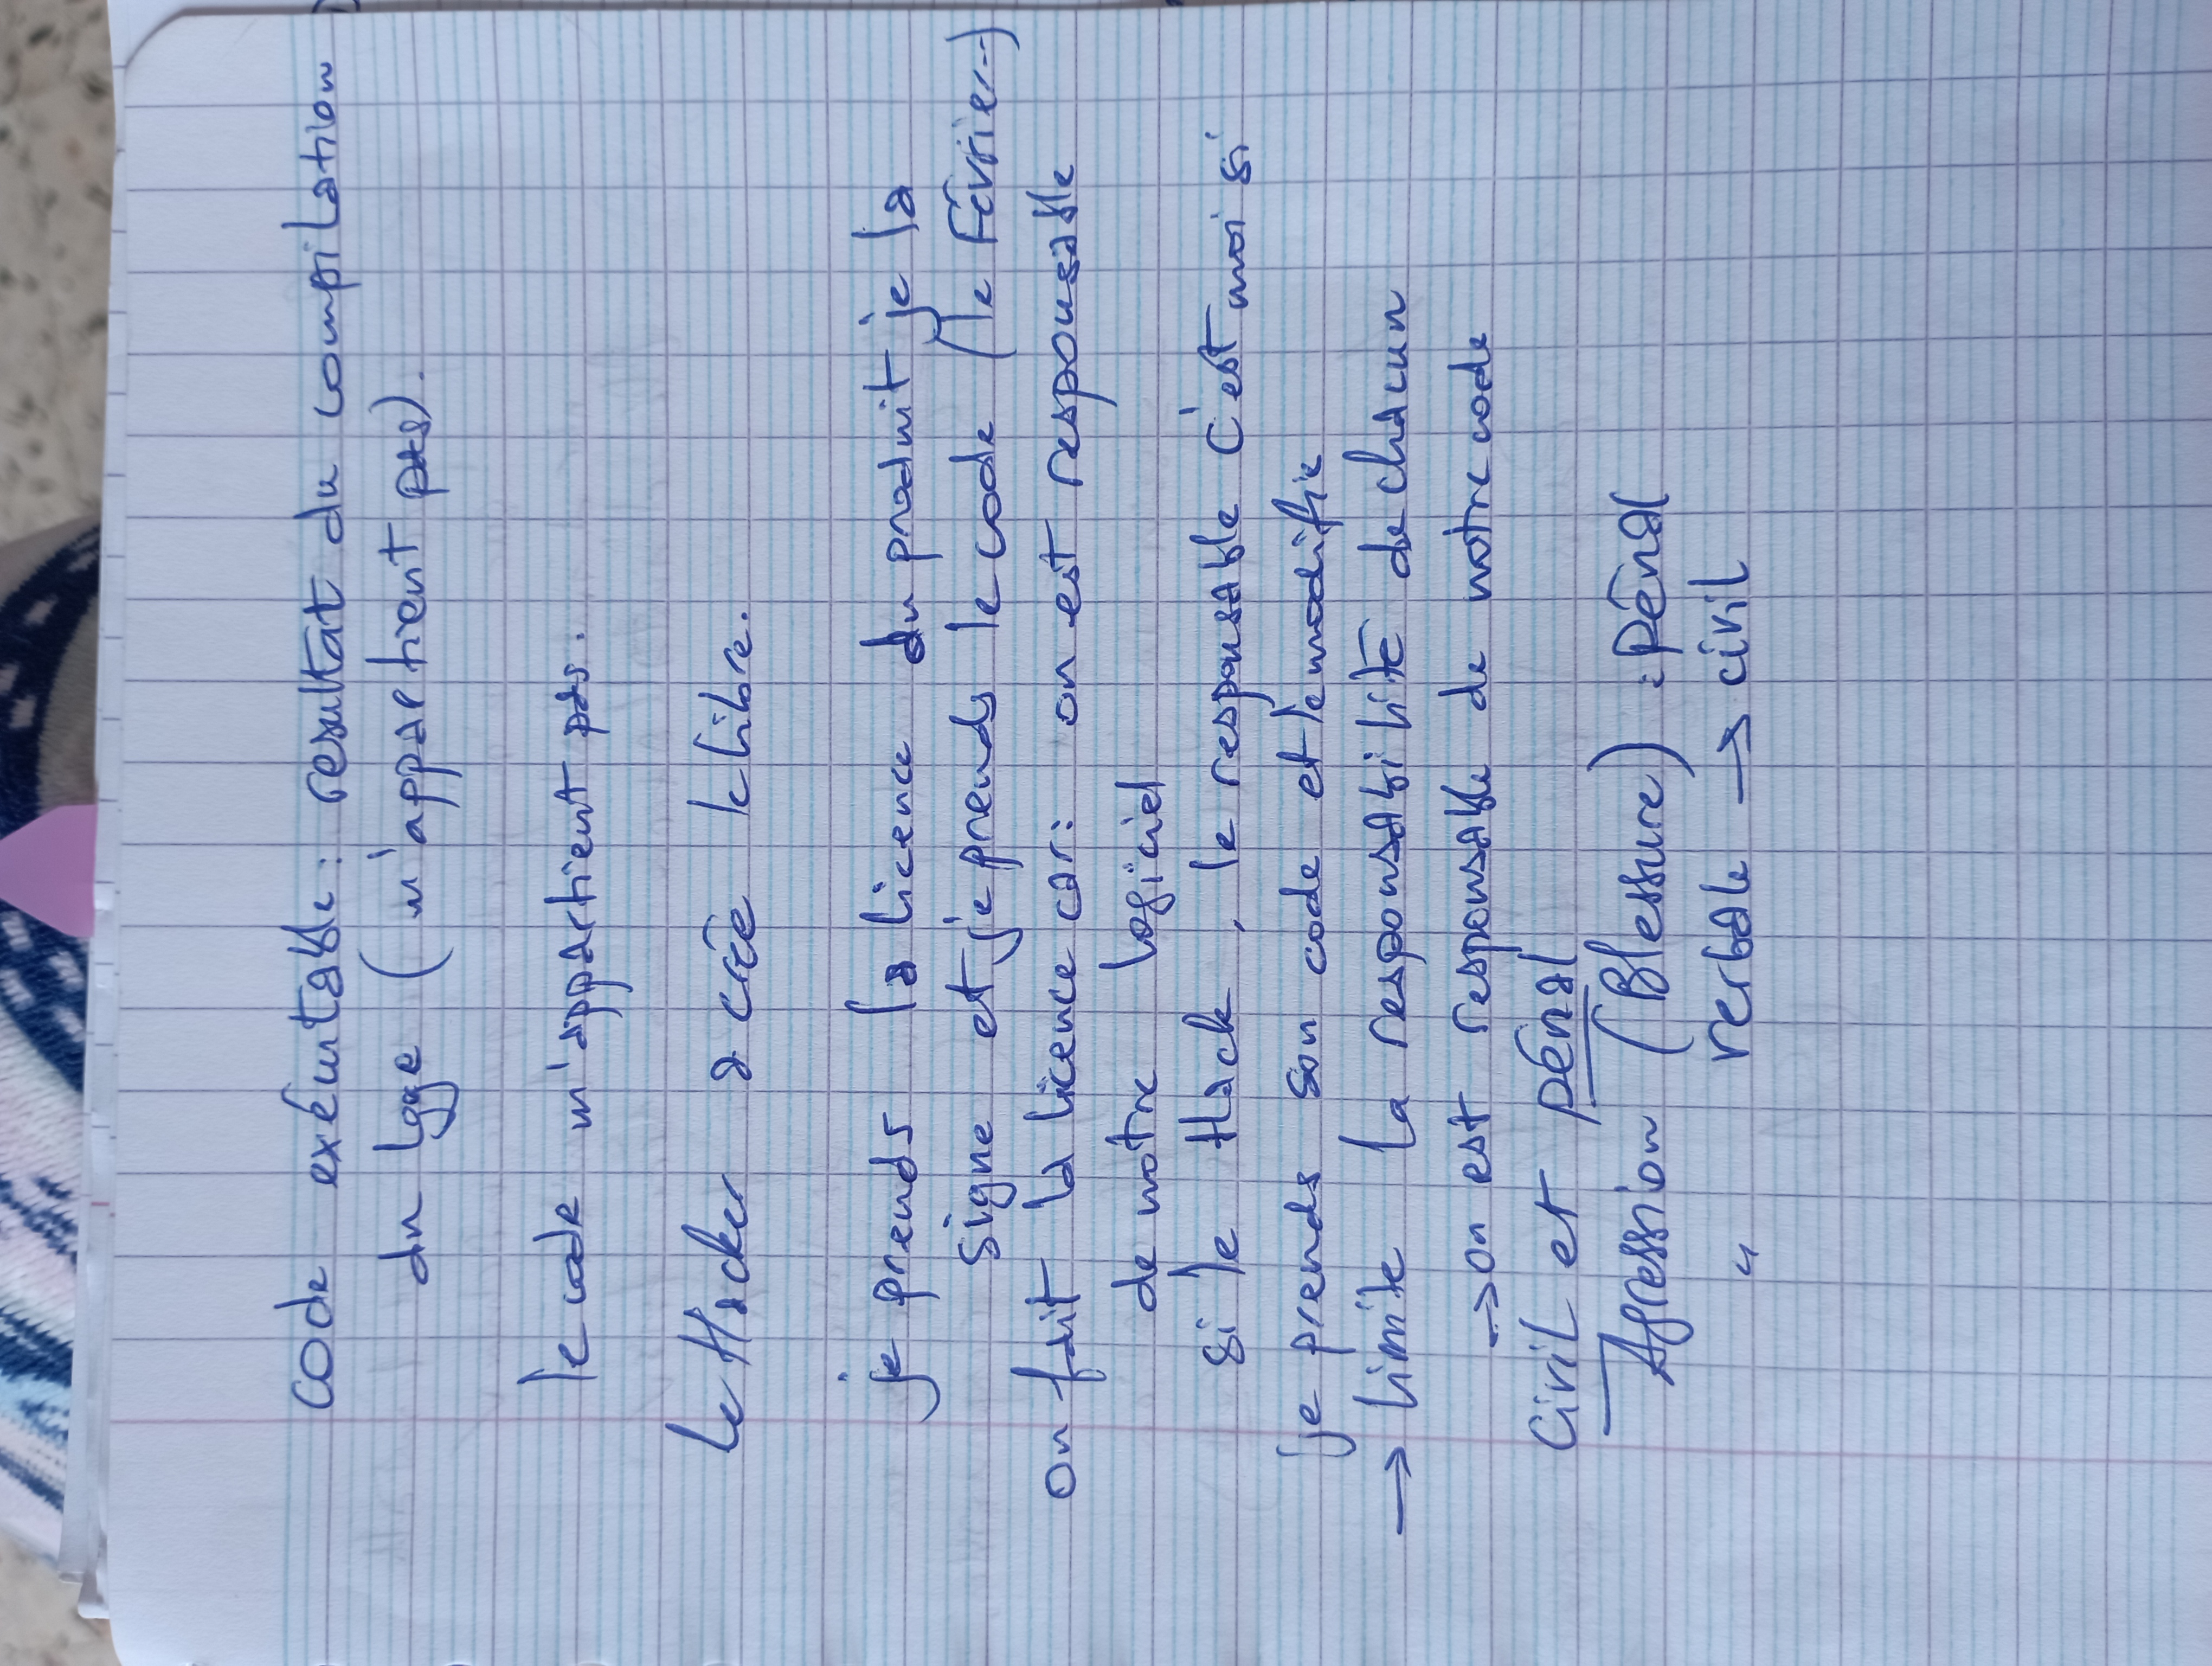 code exécutable : resultat du compilation
du lgge ( m'appartient pas).
le code m'appartient pas.
le Hacker a crée le libre.
je prends la licence du produit je la
signe et je prends le code (le Février..)
on fait la licence car: on est responsable
de notre logiciel
si le Hack, le responsable c'est moi si
je prends son code et le modifie
→ limite la responsabilité de chacun
→ on est responsable de notre code
Civil et pénal
Agression (Blessure) : pénal
" verbale → civil